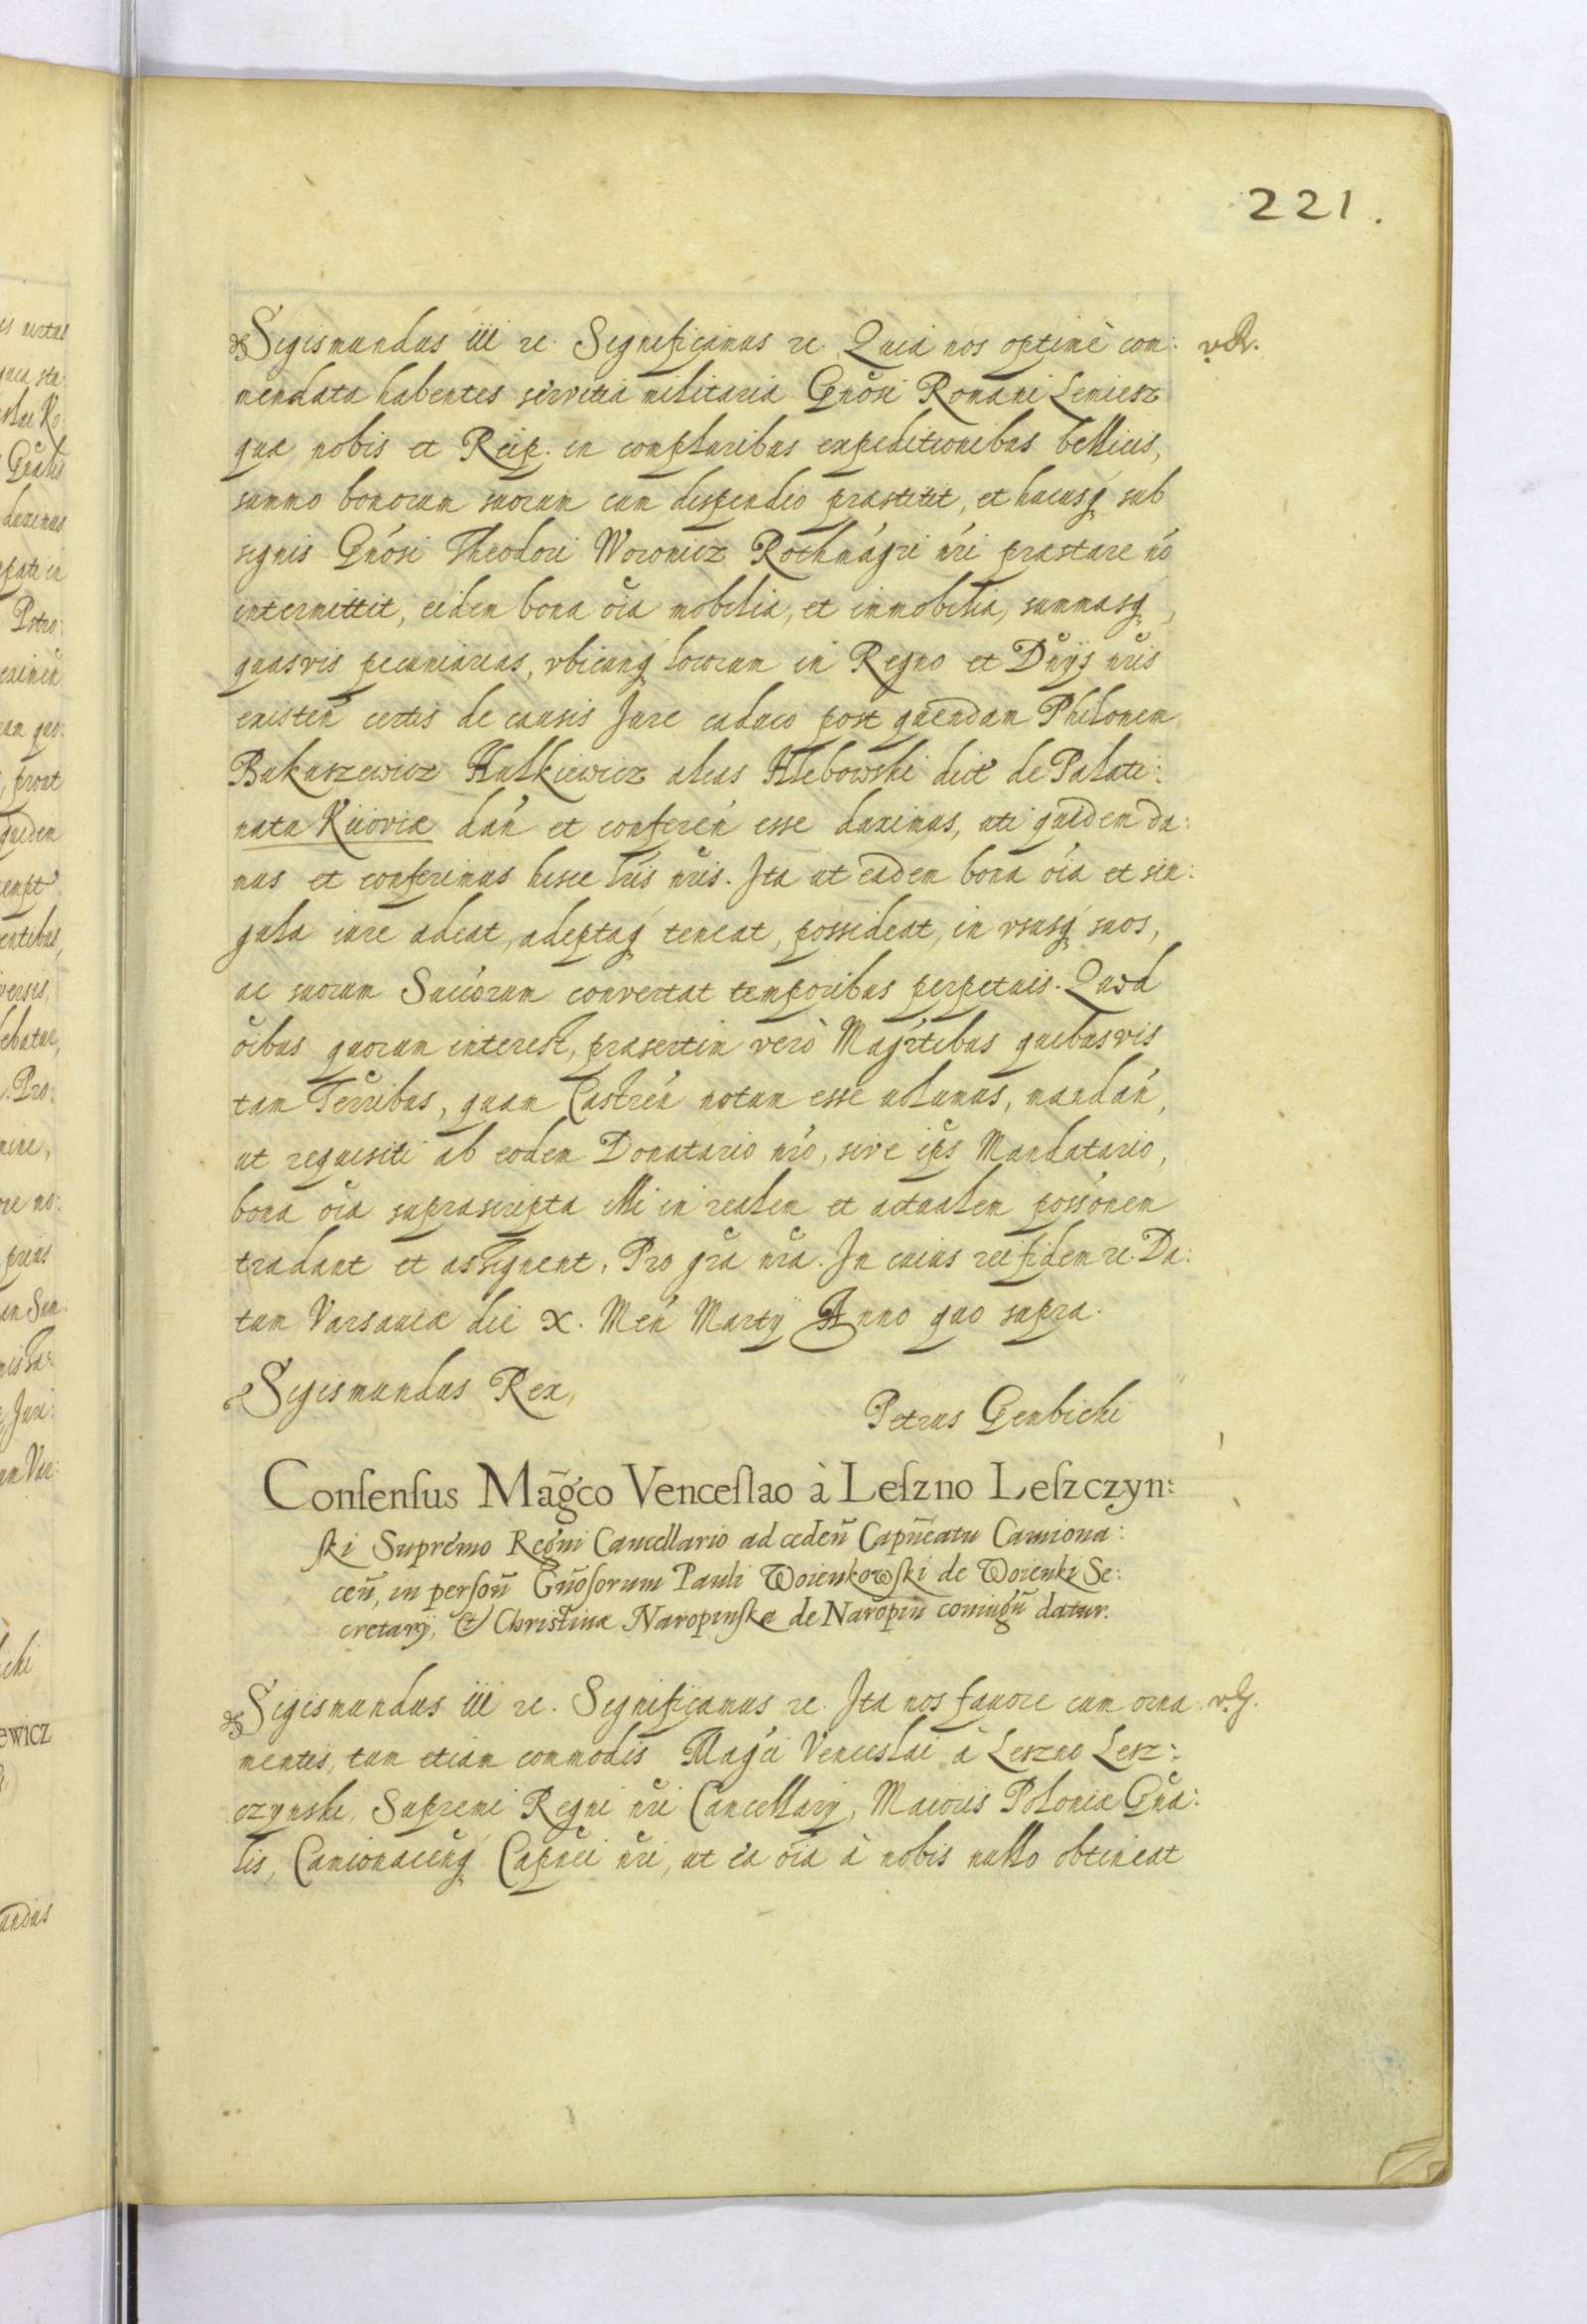 221.
Sigismundus iii rc. Significamus rc. Quia nos optimè com: v.R.
mendata habentes servitia militaria Gnősi Romani Lemiesz
quæ nobis et Reip. in compluribus expeditionibus bellicis,
summo bonorum suorum cum dispendio præstitit, et hucusq sub
signis Gnősi Theodori Woronicz Rothmágri nři præstare nő
intermittit, eidem bona őia mobilia, et immobilia, summasq,
quasvis pecuniarias, vbicunq locorum in Regno et Dnÿs nřis
existeń certis de causis Jure caduco post quendam Philonem
Bakaszewicz Hulkiewicz alias Hlebowski dict de Palati:
natu Kiioviæ dań et confereń esse duximus, uti quidem da:
mus et conferimus hisce lřis nřis. Jta ut eadem bona őia et sin:
gula iure adeat, adeptaq teneat, possideat, in vsusq suos,
ac suorum Sucőrum convertat temporibus perpetuis. Quod
őibus quorum interest, præsertim verò Magřtibus quibusvis
tam Terřibus, quam Castreń notum esse uolumus, mandań,
ut requisiti ab eodem Donatario nřo, sive ip̃s Mandatario,
bona őia suprascripta illi in realem et actualem possőnem
tradant et assignent, Pro gřa nřa. In cuius rei fidem rc. Da:
tum Varsauiæ die X. Meń Martÿ Anno quo supra.
Sigismundus Rex,
Petrus Gembicki
Conſenſus Mãgco Venceſlao à Leſzno Leſzczyn:
ſki Supremo Regni Cancellario ad cedeñ Capñeatu Camiona:
ceñ, in perſoñ Gñoſorum Pauli Woienkowſki de Woienki Se:
cretarÿ, & Chriſtinæ Naropinſkæ de Naropin coniugũ datur.
Sigismundus iii rc. Significamus rc. Jta nos fauore cum orna v.G.
mentis, tum etiam commodis Magći Venceslai à Leszno Lesz:
czynski, Supremi Regni nři Cancellarÿ, Maioris Poloniæ Gnǎ:
lis, Camionaceńq Capnei nři, ut ea őia à nobis nullo obtineat